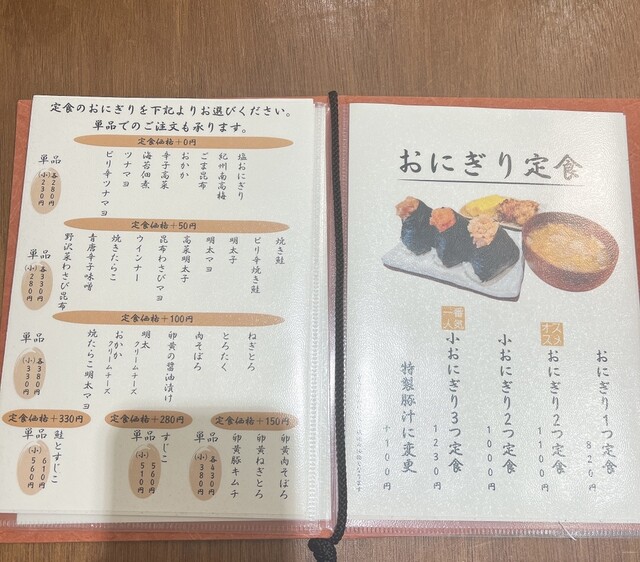 定食のおにぎりを下記よりお選びください。
単品でのご注文も承ります。
定食価格+0円
塩おにぎり
紀州南高梅
ごま昆布
おかか
辛子高菜
海苔佃煮
ツナマヨ
ピリ辛ツナマヨ
単品
各280円
(小)230円
定食価格+50円
焼き鮭
ピリ辛焼き鮭
明太子
明太マヨ
高菜明太子
昆布わさびマヨ
ウインナー
焼きたらこ
青唐辛子味噌
野沢菜わさび昆布
単品
各330円
(小)280円
定食価格+100円
ねぎとろ
とろたく
肉そぼろ
卵黄の醤油漬け
明太クリームチーズ
おかかクリームチーズ
焼たらこ明太マヨ
単品
各380円
(小)330円
定食価格+150円
卵黄肉そぼろ
卵黄ねぎとろ
卵黄豚キムチ
単品
各430円
(小)380円
定食価格+280円
すじこ
単品
560円
(小)510円
定食価格+330円
鮭とすじこ
単品
610円
(小)560円
おにぎり定食
おにぎり1つ定食
820円
オススメ
おにぎり2つ定食
1100円
小おにぎり2つ定食
1000円
一番人気
小おにぎり3つ定食
1230円
特製豚汁に変更
+100円